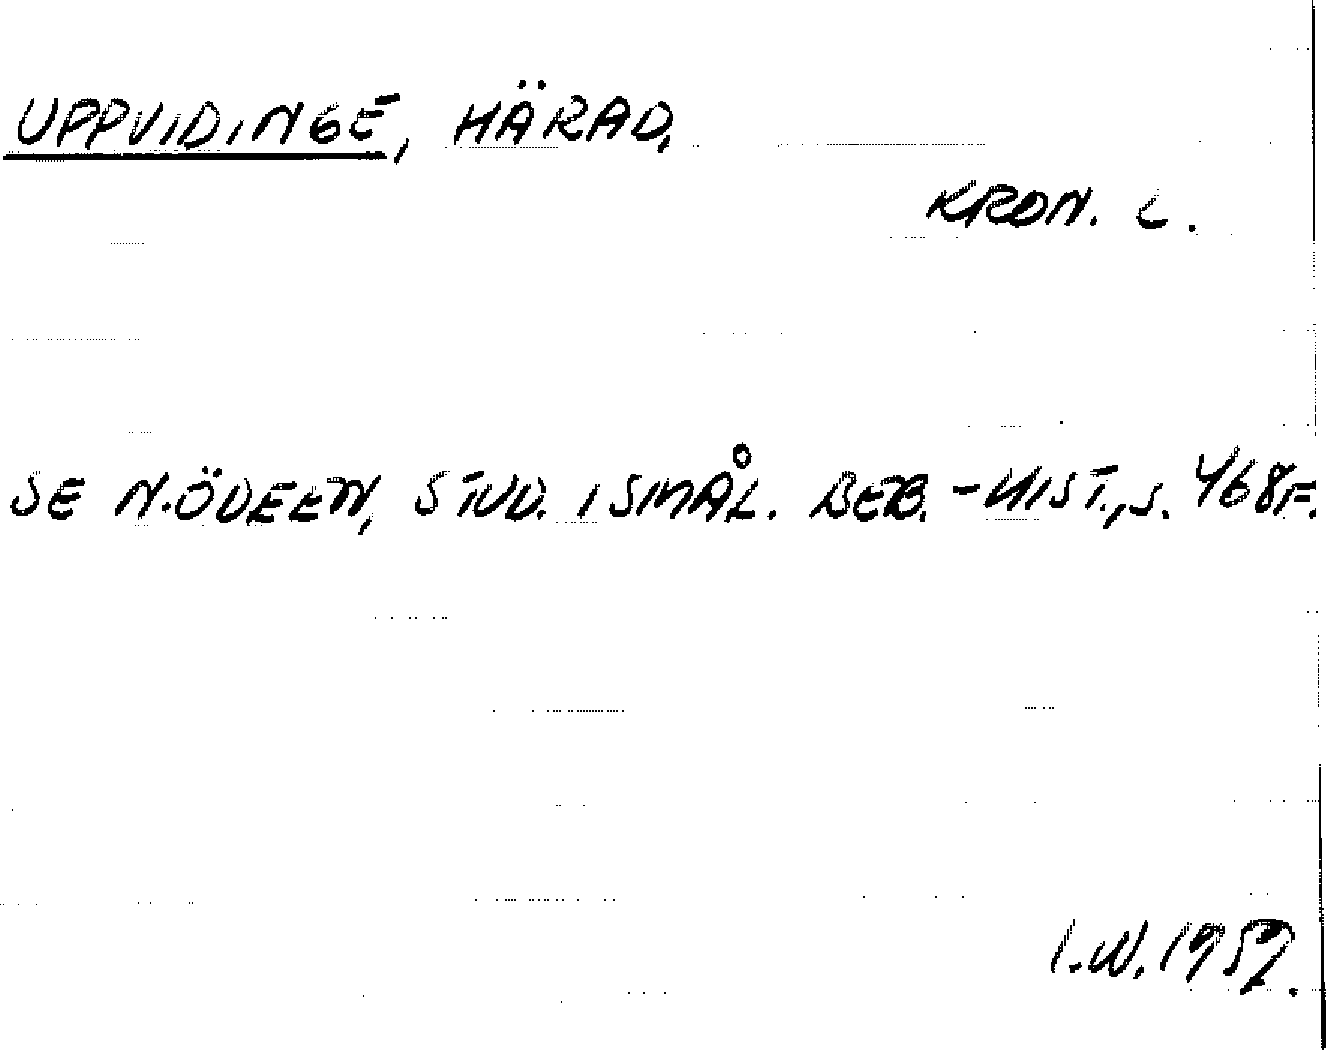 UPPVIDINGE, HÄRAD,
KRON. L.
SE N.ÖDEEN, STUD. I SMÅL. BEB.-HIST., S. 468F.
I.W. 1959.